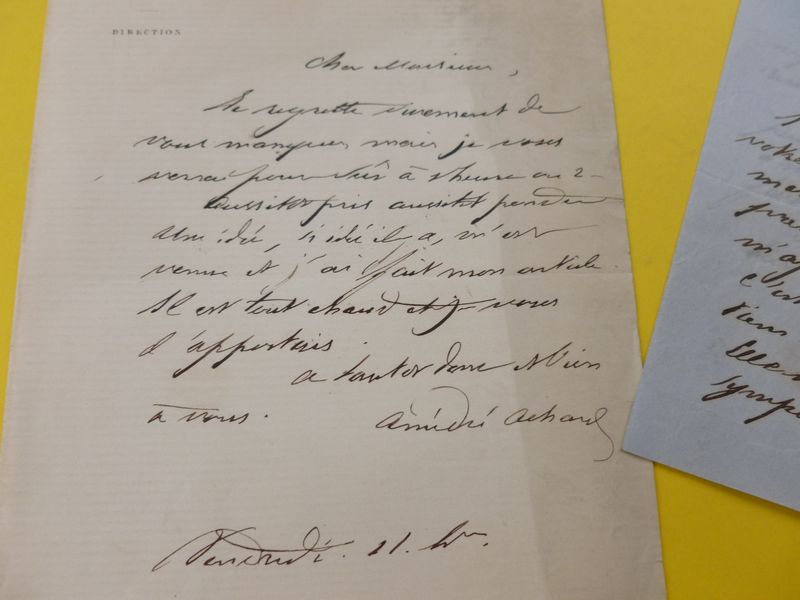 DIRECTION
Cher Monsieur,
Je regrette vivement de
vous manquer mais je vous
verrai pour sûr à 1 heure ou 2 -
Aussitôt pris aussitôt pendu
Une idée, si idée il y a, m'est
venue et j'ai fait mon article.
Il est tout chaud et je vous
l'apportais.
a tantot donc et bien
à vous.
Amédée Achard
Vendredi. 11. h
votre
c'est
viens
symp